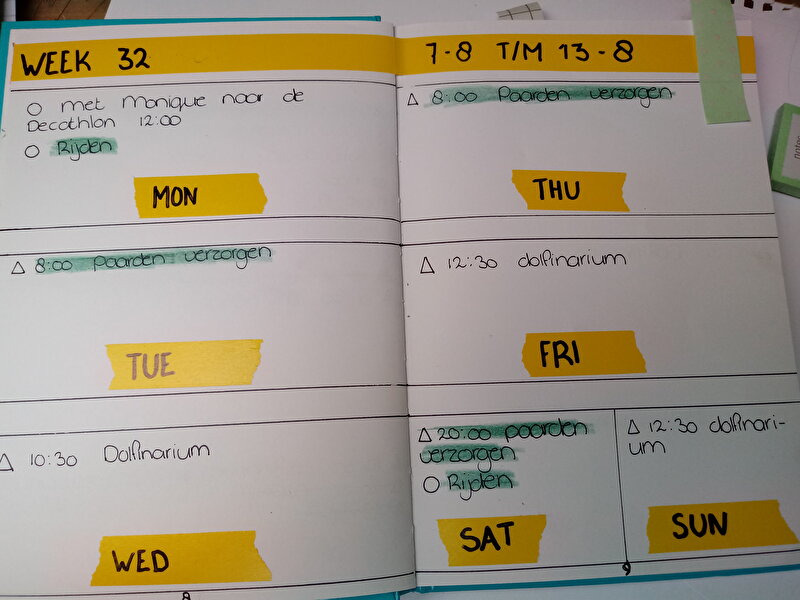 WEEK 32
O met Monique naar de
Decathlon 12:00
O Rijden
MON
△ 8:00 paarden verzorgen
TUE
△ 10:30 Dolfinarium
WED
8
7-8 T/M 13-8
△ 8:00 Paarden verzorgen
THU
△ 12:30 dolfinarium
FRI
△ 20:00 paarden
verzorgen
O Rijden
SAT
△ 12:30 dolfinari-
um
SUN
9